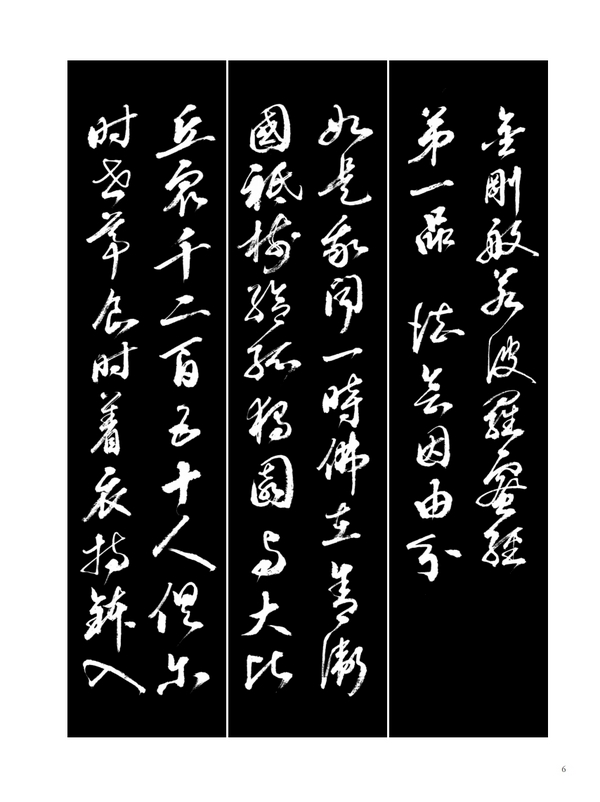 金剛般若波羅蜜經
第一品 法會因由分
如是我聞一時佛在舍衛
國祇樹給孤獨園与大比
丘衆千二百五十人俱尔
时世尊食时着衣持鉢入
6